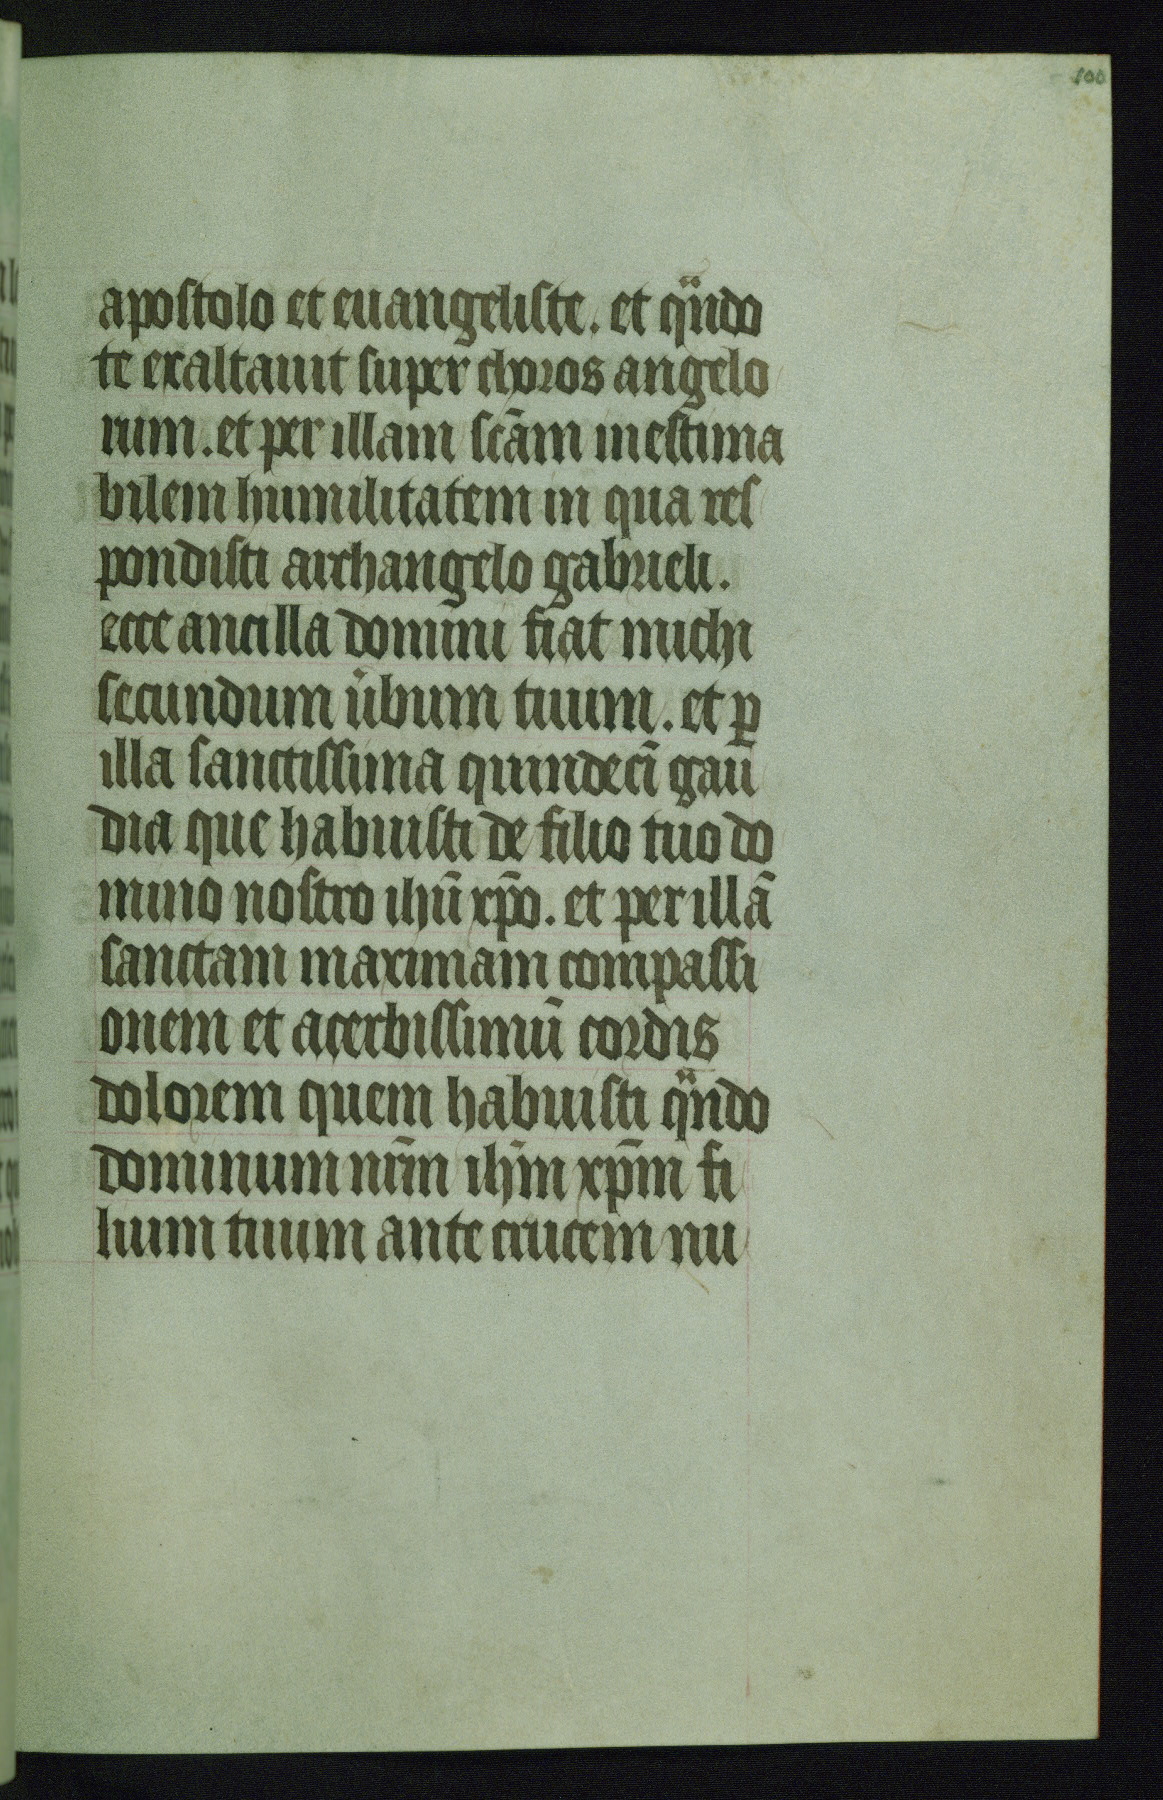 100
apostolo et euangeliste. et qͣndo
te exaltauit super choros angelo
rum. et per illam scām inestima
bilem humilitatem in qua res
pondisti archangelo gabrieli.
ecce ancilla domini fiat michi
secundum u̾bum tuum. et ꝑ
illa sanctissima quindecī gau
dia que habuisti de filio tuo do
mino nostro ihū xp̄o. et per illā
sanctam maximam compassi
onem et acerbissimū cordis
dolorem quem habuisti qͣndo
dominum nr̄m ihm̄ xp̄m fi
lium tuum ante crucem nu